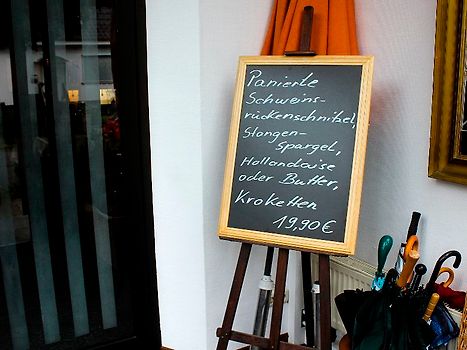 Panierte
Schweins-
rückenschnitzel,
Stangen-
Spargel,
Hollandaise
oder Butter,
Kroketten
19,90€